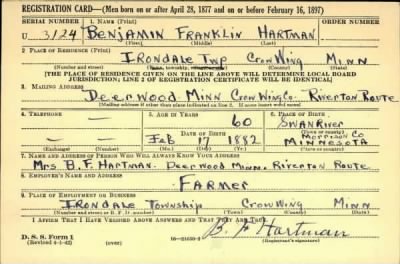 REGISTRATION CARD—(Men born on or after April 28, 1877 and on or before February 16, 1897)
SERIAL NUMBER 1. NAME (Print) ORDER NUMBER
U 3124 BENJAMIN FRANKLIN HARTMAN
(First) (Middle) (Last)
2. PLACE OF RESIDENCE (Print)
IRONDALE TWP CROW WING MINN
(Number and street) (Town, township, village, or city) (County) (State)
[THE PLACE OF RESIDENCE GIVEN ON THE LINE ABOVE WILL DETERMINE LOCAL BOARD
JURISDICTION; LINE 2 OF REGISTRATION CERTIFICATE WILL BE IDENTICAL]
3. MAILING ADDRESS
DEERWOOD MINN CROW WING CO. RIVERTON ROUTE
[Mailing address if other than place indicated on line 2. If same insert word same]
4. TELEPHONE 5. AGE IN YEARS 6. PLACE OF BIRTH
— — 60 SWAN RIVER
DATE OF BIRTH (Town or county)
MORRISON CO.
FEB 17 1882 MINNESOTA
(Exchange) (Number) (Mo.) (Day) (Yr.) (State or country)
7. NAME AND ADDRESS OF PERSON WHO WILL ALWAYS KNOW YOUR ADDRESS
MRS B. F. HARTMAN. DEERWOOD MINN. RIVERTON ROUTE
8. EMPLOYER'S NAME AND ADDRESS
FARMER
9. PLACE OF EMPLOYMENT OR BUSINESS
IRONDALE TOWNSHIP CROW WING MINN
(Number and street or R. F. D. number) (Town) (County) (State)
I AFFIRM THAT I HAVE VERIFIED ABOVE ANSWERS AND THAT THEY ARE TRUE.
D. S. S. Form 1
(Revised 4-1-42) (over) 16—21630-2 B. F. Hartman
(Registrant's signature)